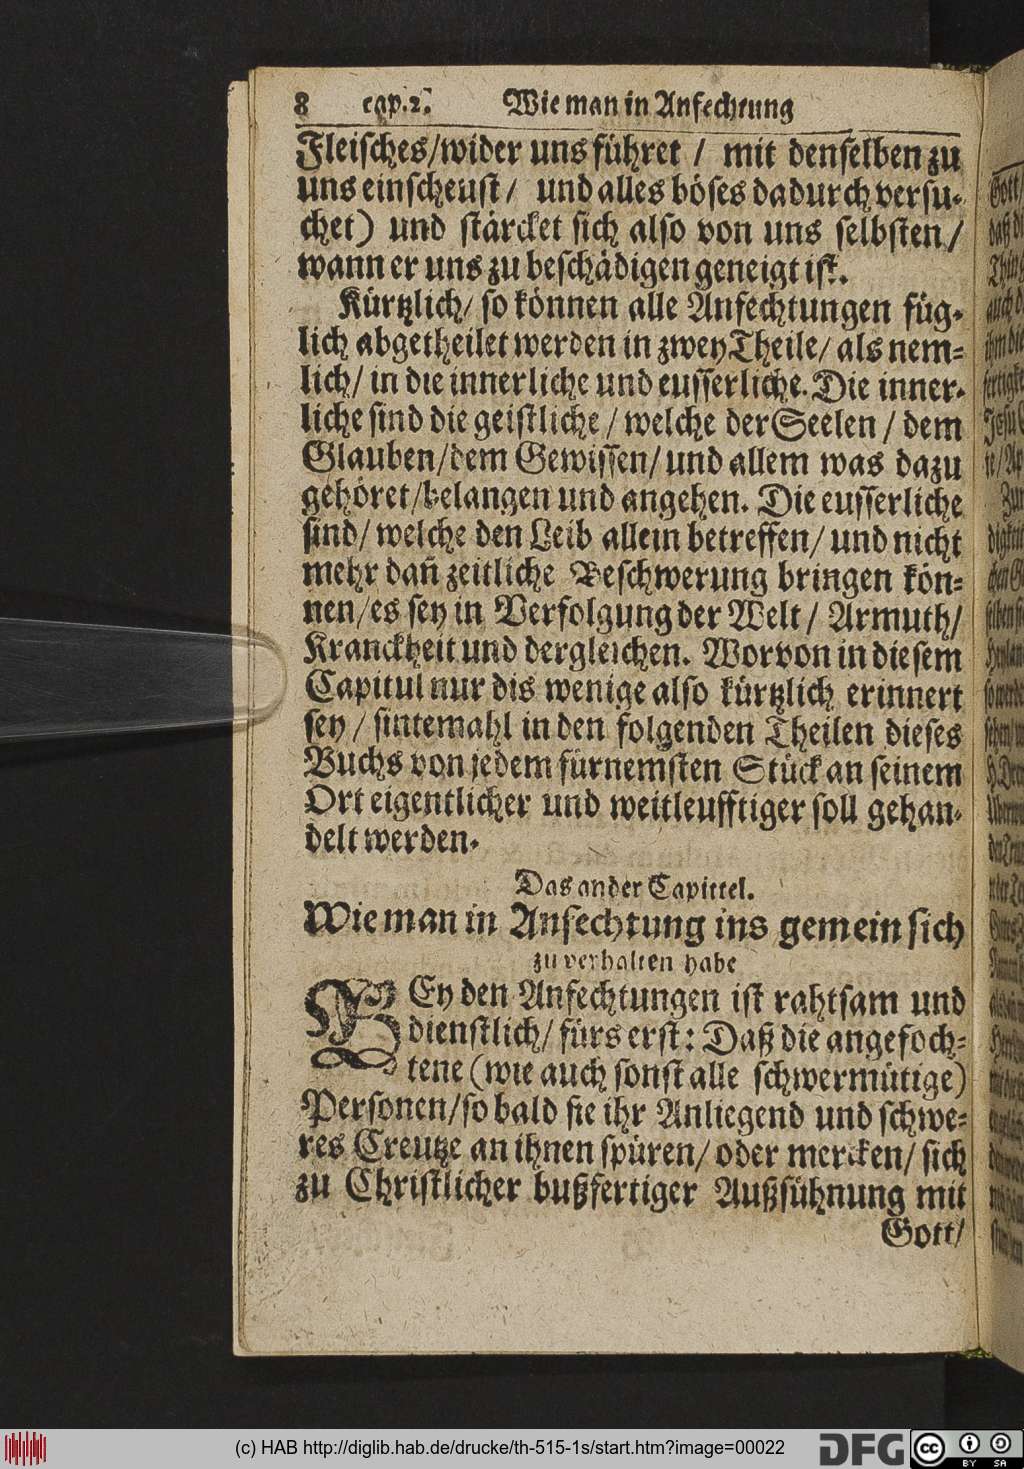 8 cap. 2. Wie man in Anfechtung
Fleisches/wider uns führet / mit denselben zu
uns einscheust / und alles böses dadurch versu-
chet) und stärcket sich also von uns selbsten/
wann er uns zu beschädigen geneigt ist.
Kürtzlich/ so können alle Anfechtungen füg-
lich abgetheilet werden in zwey Theile/ als nem-
lich/ in die innerliche und eusserliche. Die inner-
liche sind die geistliche / welche der Seelen / dem
Glauben/dem Gewissen/ und allem was dazu
gehöret/belangen und angehen. Die eusserliche
sind/ welche den Leib allein betreffen/ und nicht
mehr dañ zeitliche Beschwerung bringen kön-
nen/es sey in Verfolgung der Welt/ Armuth/
Kranckheit und dergleichen. Worvon in diesem
Capitul nur dis wenige also kürtzlich erinnert
sey / sintemahl in den folgenden Theilen dieses
Buchs von jedem fürnemsten Stück an seinem
Ort eigentlicher und weitleufftiger soll gehan-
delt werden.
Das ander Capittel.
Wie man in Anfechtung ins gemein sich
zu verhalten habe
BEy den Anfechtungen ist rahtsam und
dienstlich/ fürs erst: Daß die angefoch-
tene (wie auch sonst alle schwermütige)
Personen/so bald sie ihr Anliegend und schwe-
res Creutze an ihnen spüren/ oder mercken/ sich
zu Christlicher bußfertiger Außsühnung mit
Gott/
(c) HAB http://diglib.hab.de/drucke/th-515-1s/start.htm?image=00022
DFG
cc
BY SA